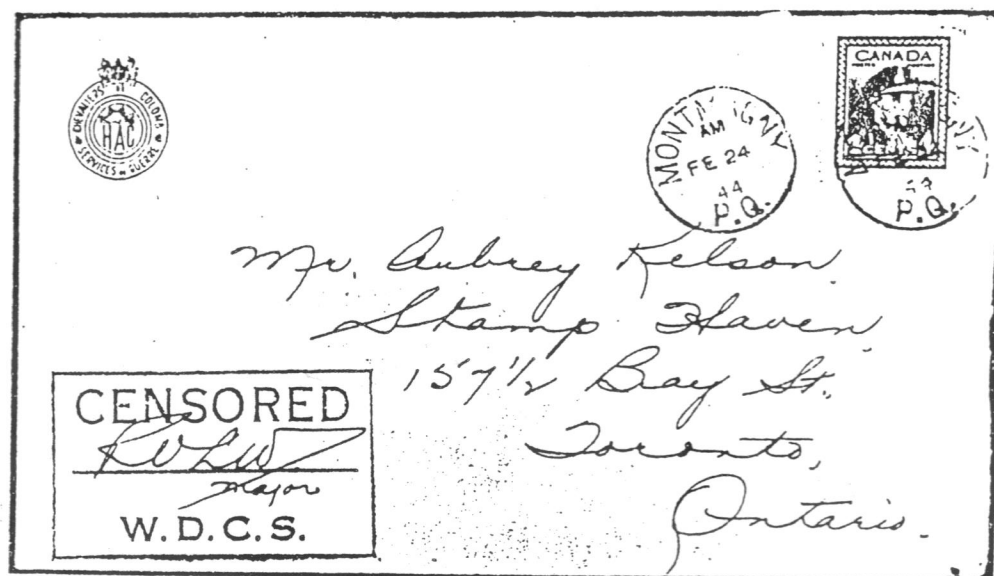 CHEVALIERS DE COLOMB
HAC
SERVICES DE GUERRE
MONTMAGNY
AM
FE 24
44
P.Q.
CANADA
POSTES POSTAGE
P.Q.
Mr. Aubrey Kelson
Stamp Haven
157 1/2 Bay St.
Toronto,
Ontario.
CENSORED
Major
W.D.C.S.